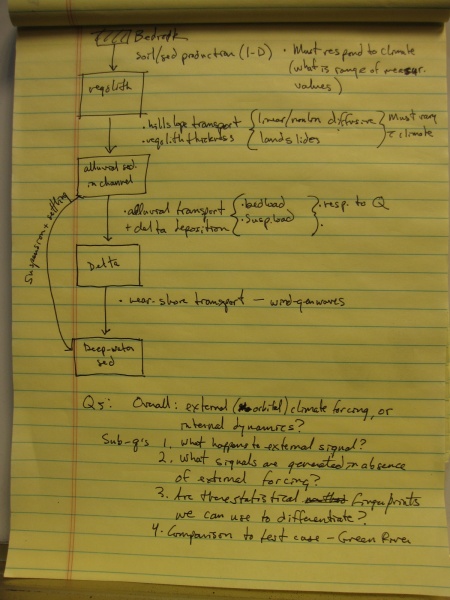 Bedrock
soil/sed production (1-D) • Must respond to climate
(what is range of measur.
values)
regolith
• hillslope transport { linear/nonlin diffusive } Must vary
• regolith thickness { landslides } c climate
alluvial sed.
in channel
• alluvial transport { • bedload } • resp. to Q
+ delta deposition { • susp. load } •
Suspension + settling
Delta
• near-shore transport — wind-gen waves
Deep-water
sed
Qs: Overall: external (orbital) climate forcing, or
internal dynamics?
Sub-q's 1. What happens to external signal?
2. What signals are generated in absence
of external forcing?
3. Are there statistical fingerprints
we can use to differentiate?
4. Comparison to test case - Green River